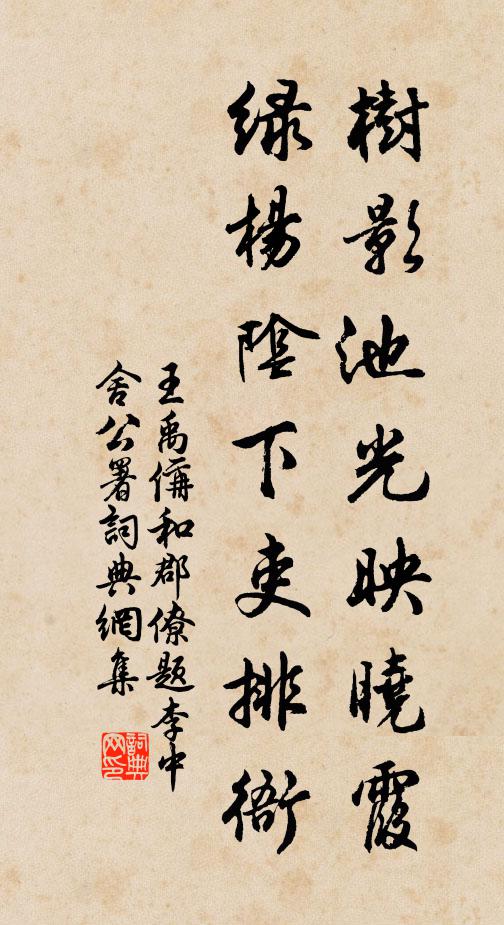 樹影池光映曉霞
綠楊陰下吏排衙
王禹偁和郡僚題李中
舍公署詞典網集
詞典網印